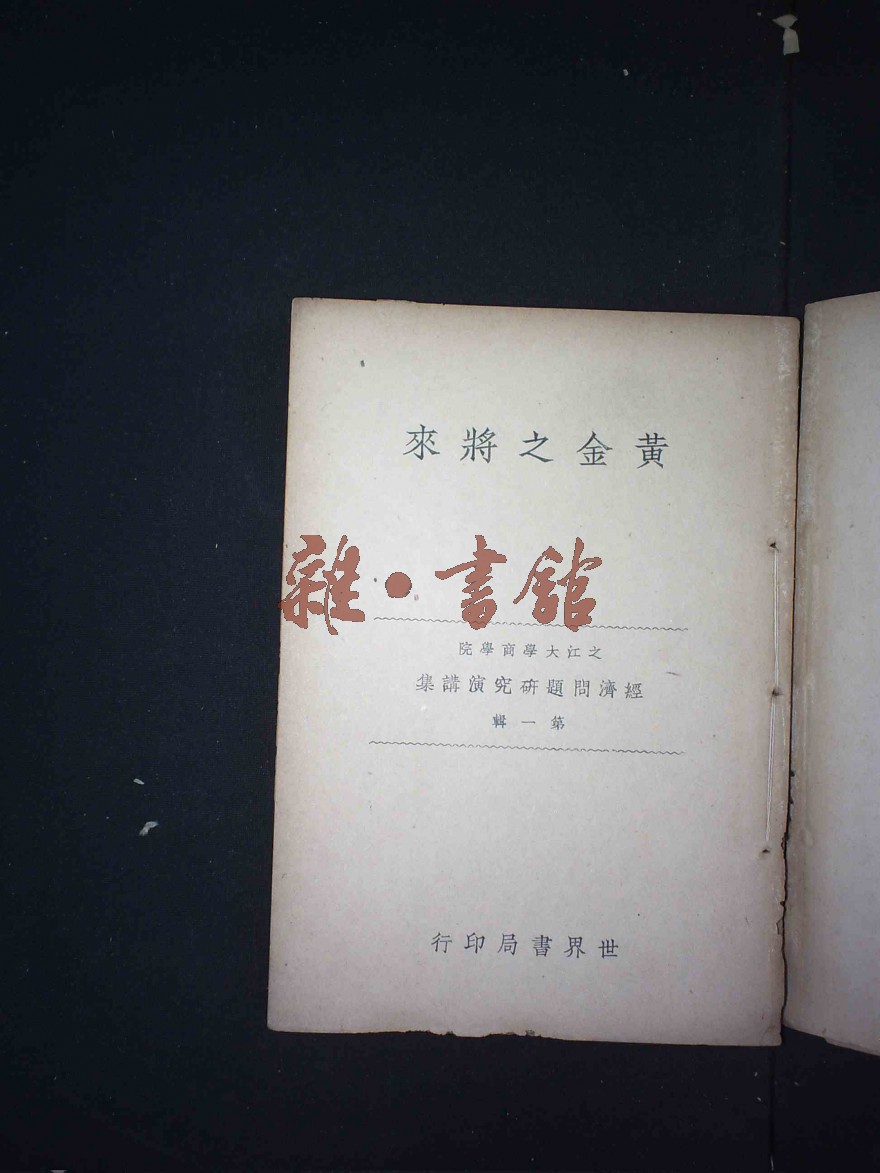 黃金之將來
雜·書館
之江大學商學院
經濟問題硏究演講集
第一輯
世界書局印行